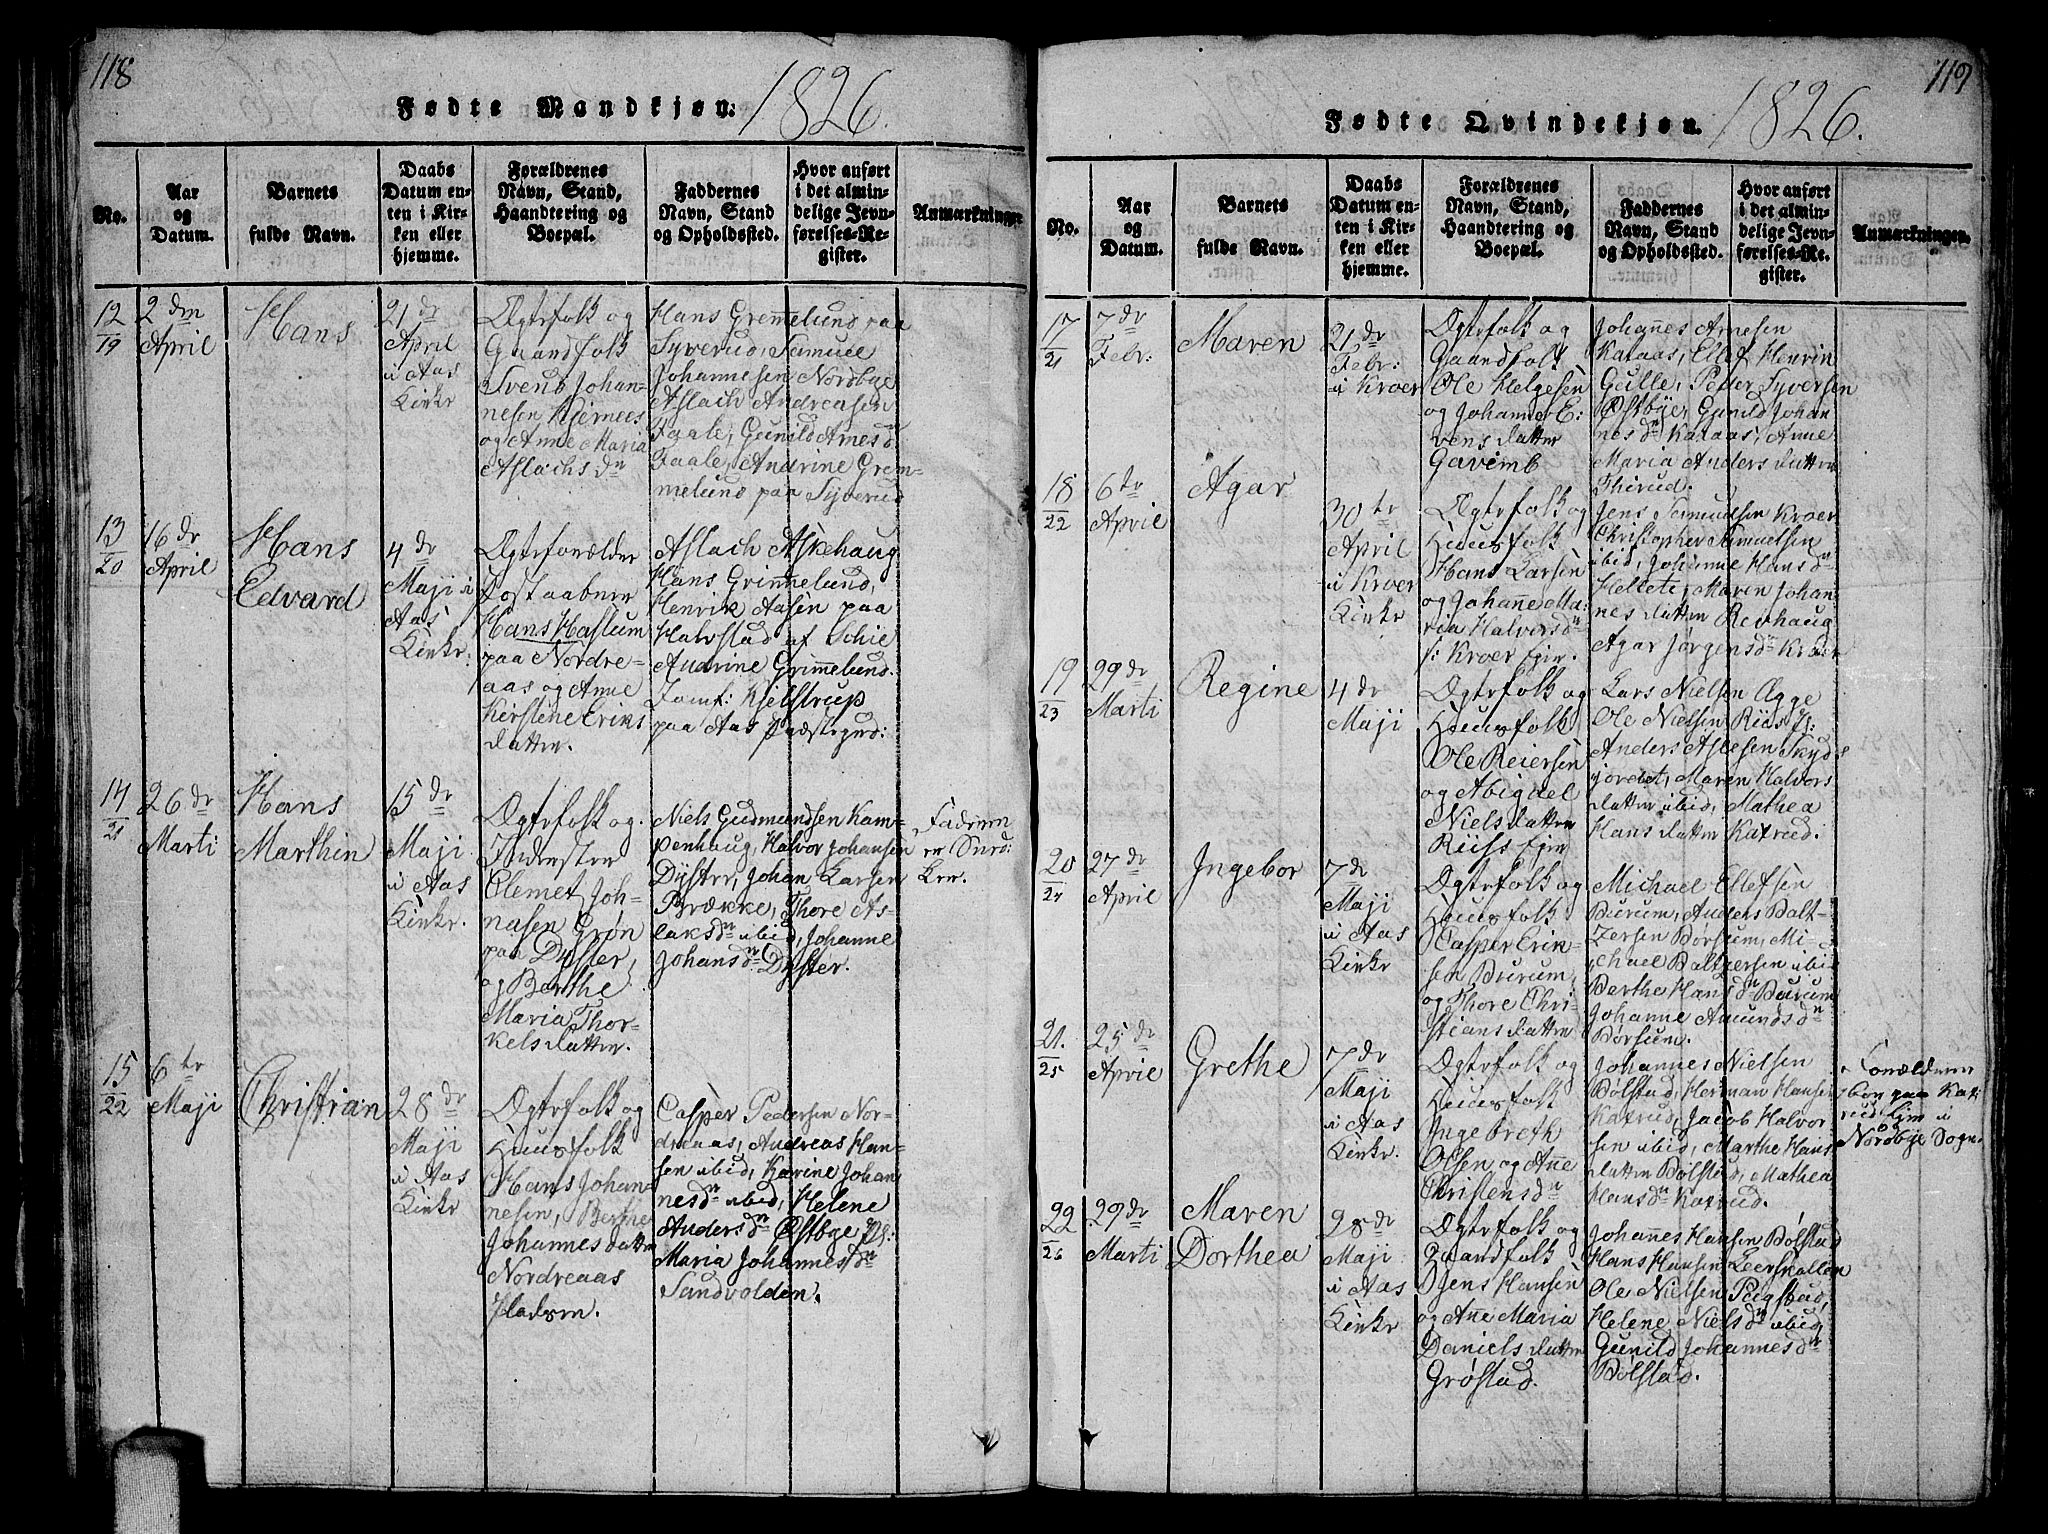 118
Fødte Mandkjøn. 1826.
No.
Aar
og
Datum.
Barnets
fulde Navn.
Daabs
Datum en-
ten i Kir-
ken eller
hjemme.
Forældrenes
Navn, Stand,
Haandtering og
Boepæl.
Faddernes
Navn, Stand
og Opholdssted.
Hvor anført
i det almin-
delige Jevn-
førelses-Re-
gister.
Anmærkninger
12
19
2den
April
Hans
21de
April
i Aas
Kirke
Ægtefolk og
Gaardfolk
Svend Johan-
nesen Kjernees
og Anne Maria
Aslachs dn
Hans Gremmelund paa
Syverud, Samuel
Johannesen Nordbye
Aslach Andreasen
Faale, Gunild Arnesd
Faale, Andrine Grem-
melund paa Syverud
13
20
16de
April
Hans
Edvard
4de
Maji i
Aas
Kirke:
Ægteforælder
Postaabner
Hans Haslum
paa Nordre-
aas og Anne
Kirstene Eriks
datter.
Aslach Askehaug
Hans Grimmelund,
Henrik Aasen paa
Halvstad af Schie
Andrine Grimmelund.
Jomf: Kjelstrup
paa Aas Præstegrd:
14
21
26de
Marti
Hans
Marthin
15de
Maji
i Aas
Kirke.
Ægtefolk og
Inderster
Clemet Joh-
nasen Grøn
paa Dyster,
og Berthe
Maria Thor-
kelsdatter.
Niels Gudmundsen Kam-
penhaug, Halvor Johansen
Dyster, Johan Larsen
Brække, Thore As-
laksdn ibid, Johanne
Johansdn Dyster.
Faderen
er Sned:
ker.
15
22
6te
Maji
Christian
28de
Maji
i Aas
Kirke
Ægtefolk og
Huusfolk
Hans Johan-
nesen, Berthe
Johannesdatter
Nordreaas
Pladsen.
Casper Pedersen Nor-
dreaas, Andreas Han-
sen ibid, Karine Johan
nesdn ibid, Helene
Andersdn Østbye Pl:
Maria Johannesdn
Sandvolden.
119
Fødte Qvindekjøn. 1826.
No.
Aar
og
Datum.
Barnets
fulde Navn.
Daabs
Datum en-
ten i Kir-
ken eller
hjemme.
Forældrenes
Navn, Stand,
Haandtering og
Boepæl.
Faddernes
Navn, Stand
og Opholdssted.
Hvor anført
i det almin-
delige Jevn-
førelses-Re-
gister.
Anmærkninger.
17
21
7de
Febr:
Maren
21de
Febr:
i Kroer
Ægtefolk og
Gaardfolk
Ole Helgesen
og Johanne E:
vensdatter
Garemb
Johannes Arnesen
Karaas, Ellef Henrik
Gulle, Peder Syversen
Østbye, Gunild Johan
nesdn Karaas, Anne
Maria Andersdatter
Thirud.
18
22
6te
April
Agar
30te
April
i Kroer
Kirke
Ægtefolk og
Huusfolk
Hans Larsen
og Johanne Ma:
ria Halvorsdn
Kroer Ejer.
Jens Samuelsen Kroer
Christopher Samuelsen
ibid, Johanne Hansdn
Hellete, Maren Johan
nesdatter Revhaug
Agar Jørgensdn Kroer
19
23
29de
Marti
Regine
4de
Maji
Ægtefolk og
Huusfolk
Ole Reiersen
og Abiguel
Nielsdatter
Riiss Ejer
Lars Nielsen Agge
Ole Nielsen Riis Pl:
Anders Aslesen Skyds
jordet, Maren Halvors
datter ibid, Mathea
Hansdatter Kaxrud.
20
24
27de
April
Ingebor
7de
Maji
i Aas
Kirke
Ægtefolk og
Huusfolk
Casper Erik-
sen Burum
og Thore Chri-
stiansdatter
Michael Ellefsen
Burum, Anders Balt-
zersen Børsum, Mi-
chael Baltzersen ibid
Berthe Hansdn Burum
Johanne Amundsdn
Børsum.
21.
25
25de
April
Grethe
7de
Maji
i Aas
Kirke.
Ægtefolk og
Huusfolk
Ingebreth
Olsen og Anne
Christensdn
Johannes Nielsen
Bølstad, Herman Hansen
Kaxrud, Jacob Halvor
sen ibid, Marthe Hans
datter Bølstad, Mathea
Hansdn Kaxrud.
Forælderne
boer paa Kax
rud Ejer i
Nordbye Sogn.
22
26
29de
Marti
Maren
Dorthea
28de
Maji
i Aas
Kirke
Ægtefolk og
Gaardfolk
Jens Hansen
og Ane Maria
Danielsdatter
Grøstad.
Johannes Hansen Bølstad
Hans Hansen Leerskallen
Ole Nielsen Pugstad,
Helene Nielsdn ibid,
Gunild Johannesdn
Bølstad.